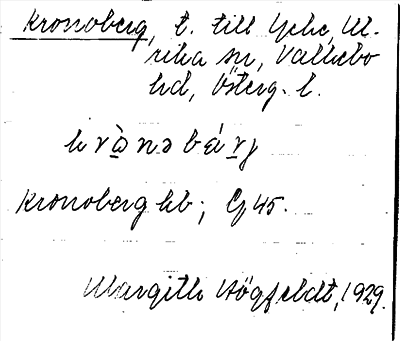 Kronoberg, t. till Yehe, Ul-
rika sn, Vallebo
hd, Österg. l.
krò̱nəbárj
Kronoberg hb; Gj 45.
Margith Högfeldt, 1929.